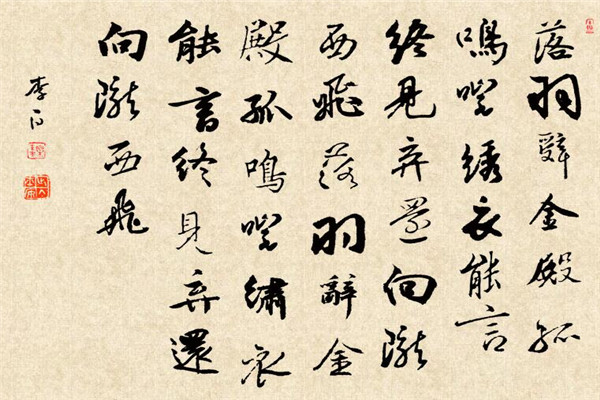 落羽辭金殿孤
鳴咤绣衣能言
終見弃還向隴
西飛落羽辭金
殿孤鳴咤繡衣
能言終見弃還
向隴西飛
李白